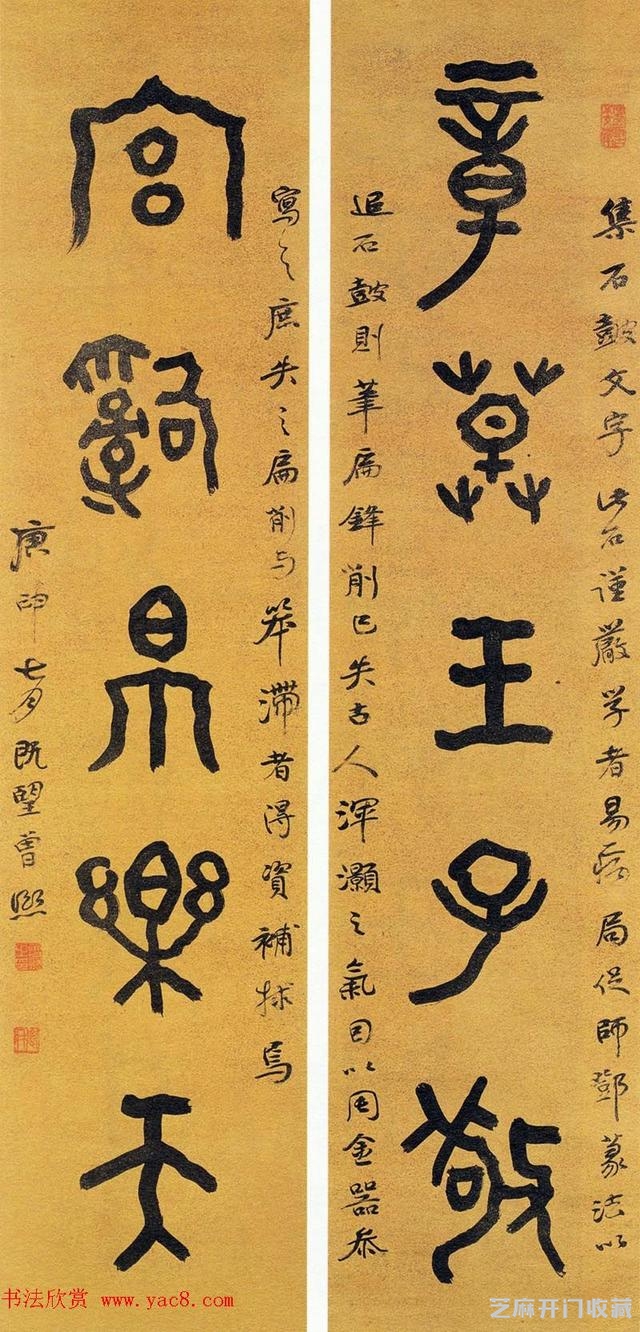 集石鼓文字此石谨嚴学者易病局促師鄧篆法以
章草王子敬
追石鼓則筆扁鋒削已失古人渾灝之氣因以周金器叅
寫之庶失之扁削与笨滞者得資補捄焉
宫辭帛樂天
庚申七月既望曾熙
书法欣赏 www.yac8.com
芝麻开门收藏